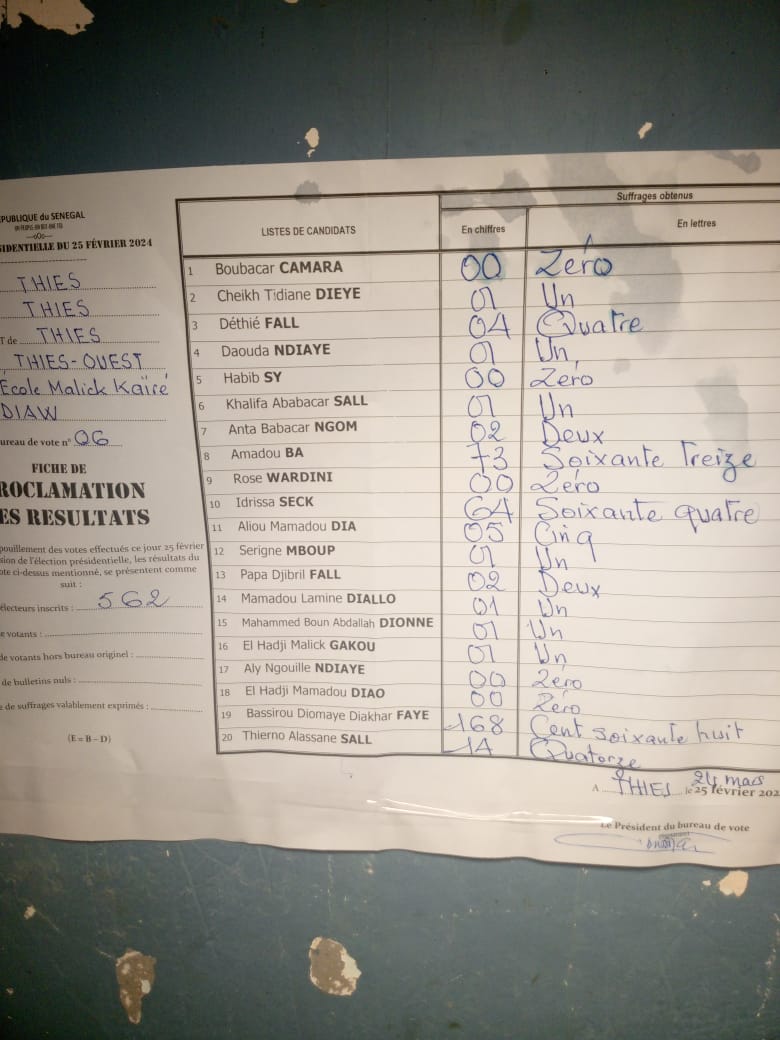 EPUBLIQUE du SENEGAL
UN PEUPLE-UN BUT-UNE FOI
—o0o—
SIDENTIELLE DU 25 FÉVRIER 2024
THIES
THIES
T de THIES
THIES-OUEST
Ecole Malick Kaïré
DIAW
ureau de vote n° 06
FICHE DE
ROCLAMATION
ES RESULTATS
pouillement des votes effectués ce jour 25 février
sion de l'élection présidentielle, les résultats du
ote ci-dessus mentionné, se présentent comme
suit :
électeurs inscrits : 562
e votants :
de votants hors bureau originel :
de bulletins nuls :
e de suffrages valablement exprimés :
(E = B – D)
Suffrages obtenus
LISTES DE CANDIDATS En chiffres En lettres
1 Boubacar CAMARA 00 Zéro
2 Cheikh Tidiane DIEYE 01 Un
3 Déthié FALL 04 Quatre
4 Daouda NDIAYE 01 Un
5 Habib SY 00 Zéro
6 Khalifa Ababacar SALL 01 Un
7 Anta Babacar NGOM 02 Deux
8 Amadou BA 73 Soixante Treize
9 Rose WARDINI 00 Zéro
10 Idrissa SECK 64 Soixante quatre
11 Aliou Mamadou DIA 05 Cinq
12 Serigne MBOUP 01 Un
13 Papa Djibril FALL 02 Deux
14 Mamadou Lamine DIALLO 01 Un
15 Mahammed Boun Abdallah DIONNE 01 Un
16 El Hadji Malick GAKOU 01 Un
17 Aly Ngouille NDIAYE 00 Zéro
18 El Hadji Mamadou DIAO 00 Zéro
19 Bassirou Diomaye Diakhar FAYE 168 Cent soixante huit
20 Thierno Alassane SALL 14 Quatorze
24 mars
A THIES le 25 février 202
Le Président du bureau de vote